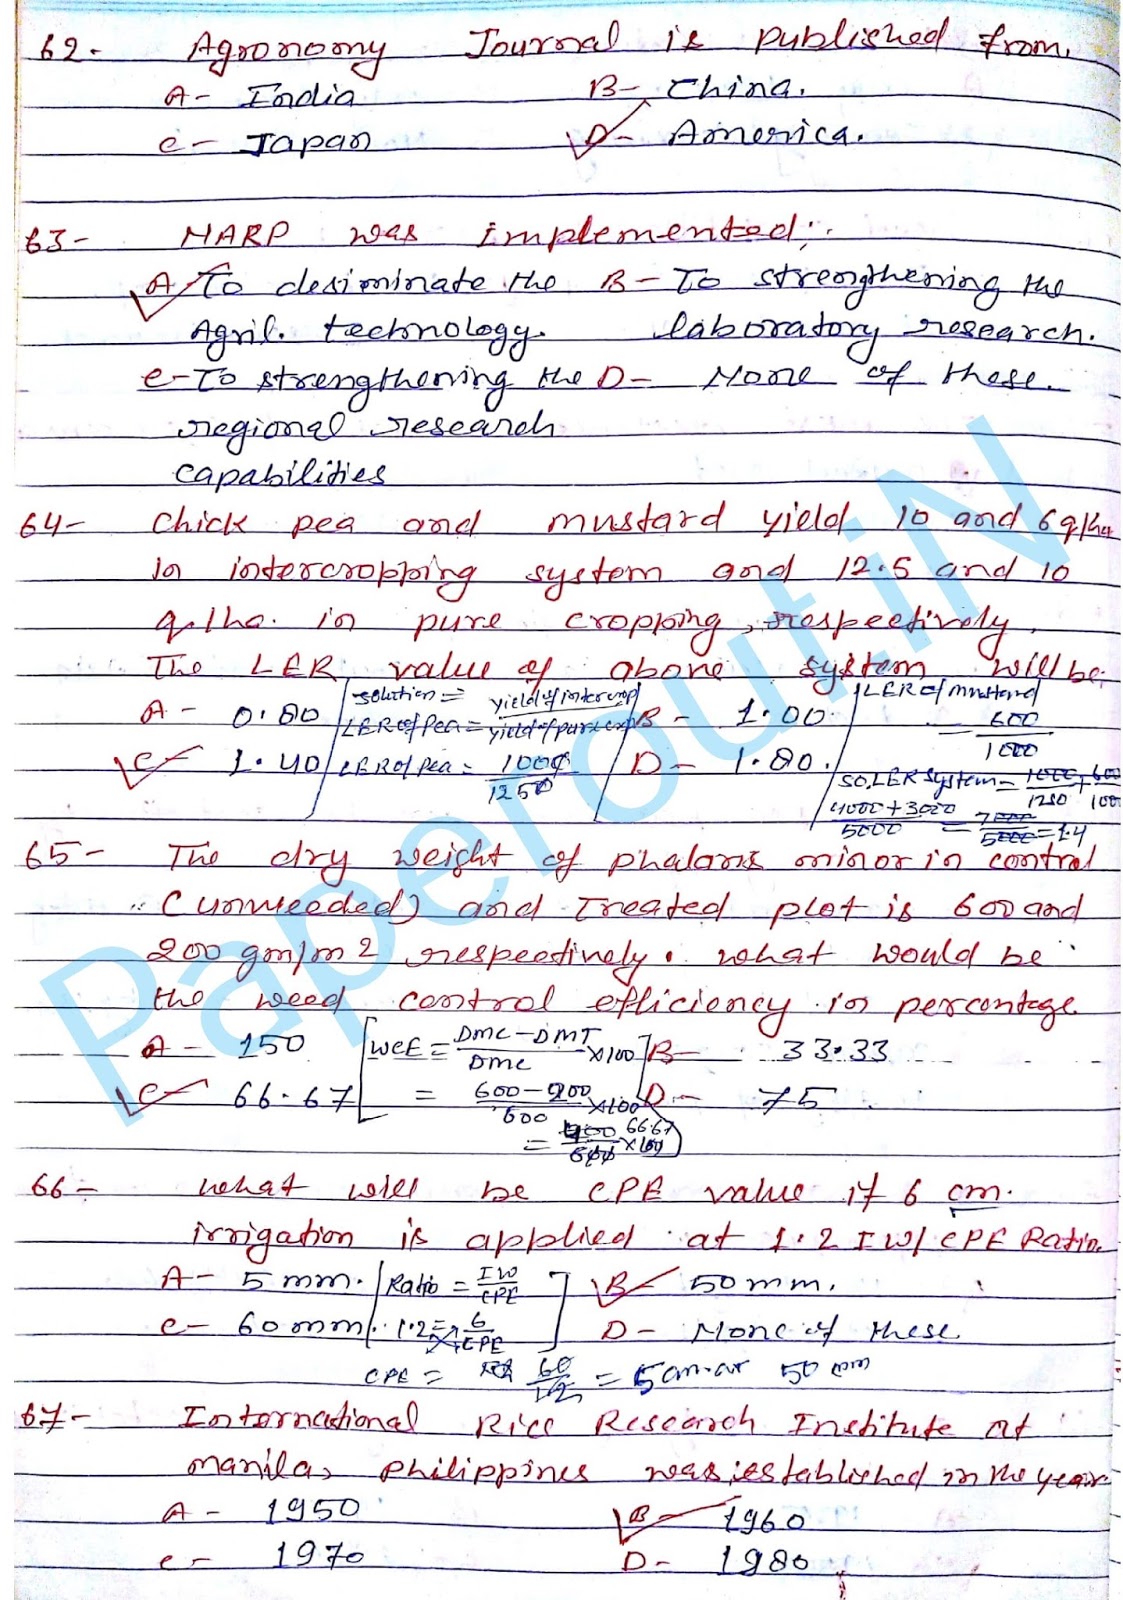 62- Agronomy Journal is published from.
A- India B- China.
C- Japan D- America.
63- NARP was implemented:
A- To desiminate the B- To strengthening the
Agril. technology. laboratory research.
C- To strengthening the D- None of these.
regional research
capabilities
64- Chick pea and mustard yield 10 and 6 q/ha
in intercropping system and 12.5 and 10
q/ha. in pure cropping, respectively.
The LER value of above system will be:
A- 0.80 B- 1.00
C- 1.40 D- 1.80.
Solution = yield of intercrop
LER of Pea = yield of pure crop
LER of Pea = 1000/1250
LER of mustard
= 600/1000
SO, LER system = 1000/1250 + 600/100
4000+3000/5000 = 7000/5000 = 1.4
65- The dry weight of phalaris minor in control
(unweeded) and Treated plot is 600 and
200 gm/m2 respectively. what would be
the weed control efficiency in percentage
A- 150 B- 33.33
C- 66.67 D- 75
WCE = DMC-DMT/DMC ×100
= 600-200/600 ×100
= 400/600 ×100 66.67
66- what will be CPE value if 6 cm.
irrigation is applied at 1.2 IW/CPE Ratio.
A- 5 mm. B- 50 mm.
C- 60 mm. D- None of these
Ratio = IW/CPE
1.2 = 6/CPE
CPE = 60/12 = 5 cm. or 50 mm
67- International Rice Research Institute at
manila, philippines was established in the year.
A- 1950 B- 1960
C- 1970 D- 1980
Paperout.iN